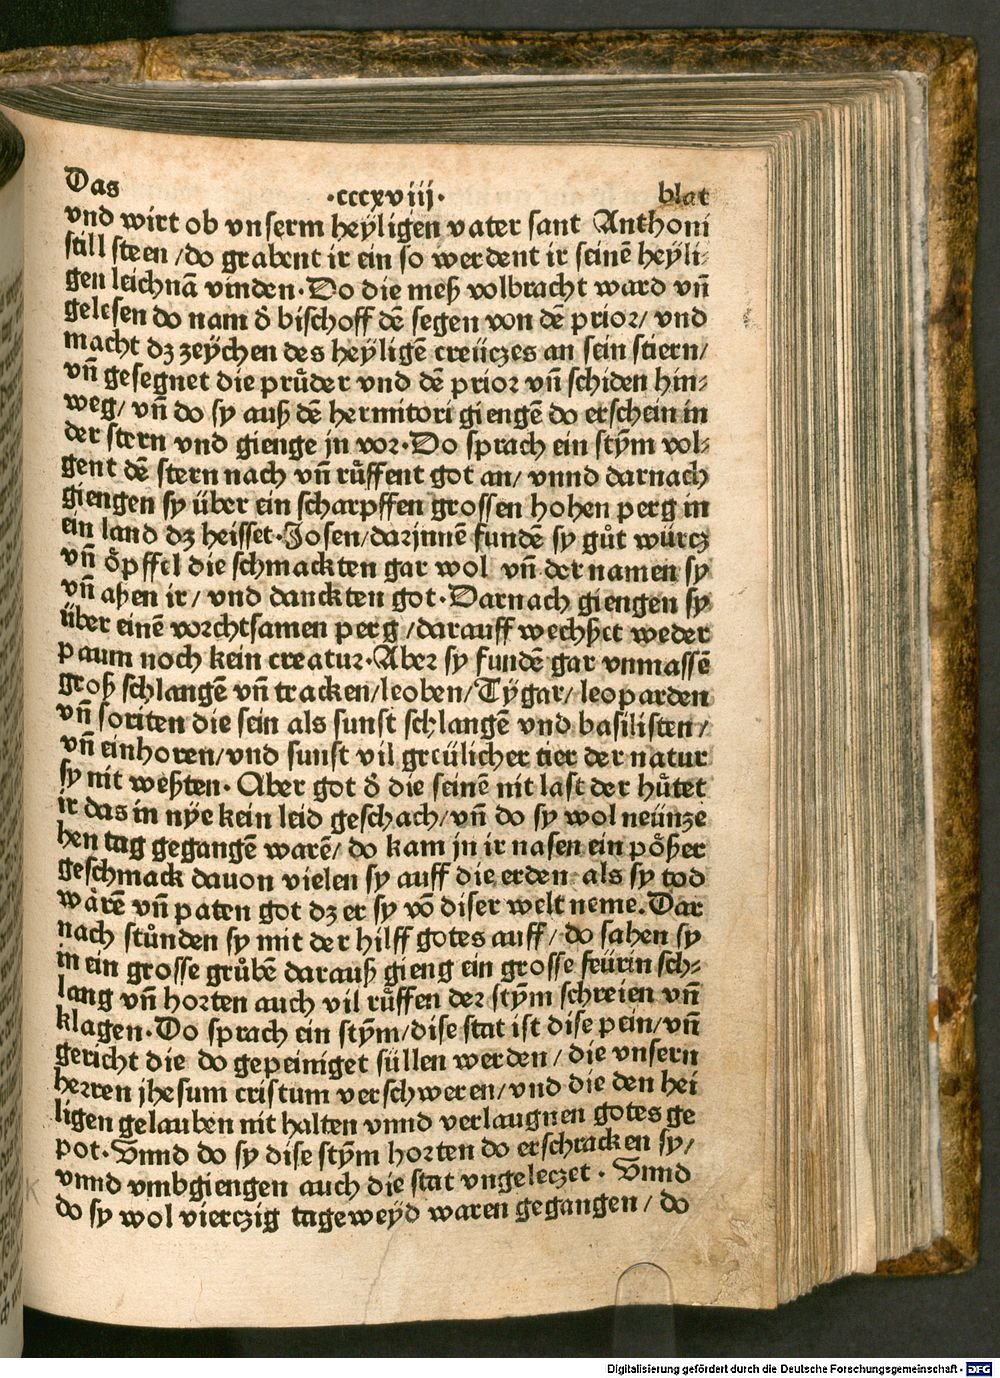 Das .cccxviij. blat
vnd wirt ob vnserm heÿligen vater sant Anthoni
still steen /do grabent ir ein so werdent ir seinē heÿli⸗
gen leichnā vinden. Do die meß volbracht ward vn̄
gelesen do nam ð bischoff dē segen von dē prior/ vnd
macht dz zeÿchen des heÿligē creüczes an sein stiern/
vn̄ gesegnet die průder vnd dē prior vn̄ schiden hin⸗
weg/ vn̄ do sy auß dē hermitori giengē do erschein in
der stern vnd gienge jn vor. Do sprach ein stȳm vol⸗
gent dē stern nach vn̄ růffent got an/ vnnd darnach
giengen sy über ein scharpffen grossen hohen perg in
ein land dz heisset. Josen/darjnnē fundē sy gůt würcz
vn̄ oͤpffel die schmackten gar wol vn̄ der namen sy
vn̄ aßen ir/ vnd danckten got. Darnach giengen sy
über einē vorchtsamen perg /darauff wechßet weder
paum noch kein creatur. Aber sy fundē gar vnmassē
groß schlangē vn̄ tracken/leoben/Tÿgar/leoparden
vn̄ soriten die sein als sunst schlangē vnd basilisten/
vn̄ einhoren/vnd sunst vil greülicher tier der natur
sy nit weßten. Aber got ð die seinē nit last der hůtet
ir das in nÿe kein leid geschach/vn̄ do sy wol neünze
hen tag gegangē warē/ do kam jn ir nasen ein poͤßer
geschmack dauon vielen sy auff die erden als sy tod
wårē vn̄ paten got dz er sy vō diser welt neme. Dar
nach stůnden sy mit der hilff gotes auff/ do sahen sy
in ein grosse grůbē darauß gieng ein grosse feürin sch⸗
lang vn̄ horten auch vil růffen der stȳm schreien vn̄
klagen. Do sprach ein stȳm/dise stat ist dise pein/vn̄
gericht die do gepeiniget süllen werden/ die vnsern
herren jhesum cristum verschweren/vnd die den hei
ligen gelauben nit halten vnnd verlaugnen gotes ge
pot. Vnnd do sy dise stȳm horten do erschracken sy/
vnnd vmbgiengen auch die stat vngeleczet. Vnnd
do sy wol vierczig tageweÿd waren gegangen/ do
Digitalisierung gefördert durch die Deutsche Forschungsgemeinschaft - DFG